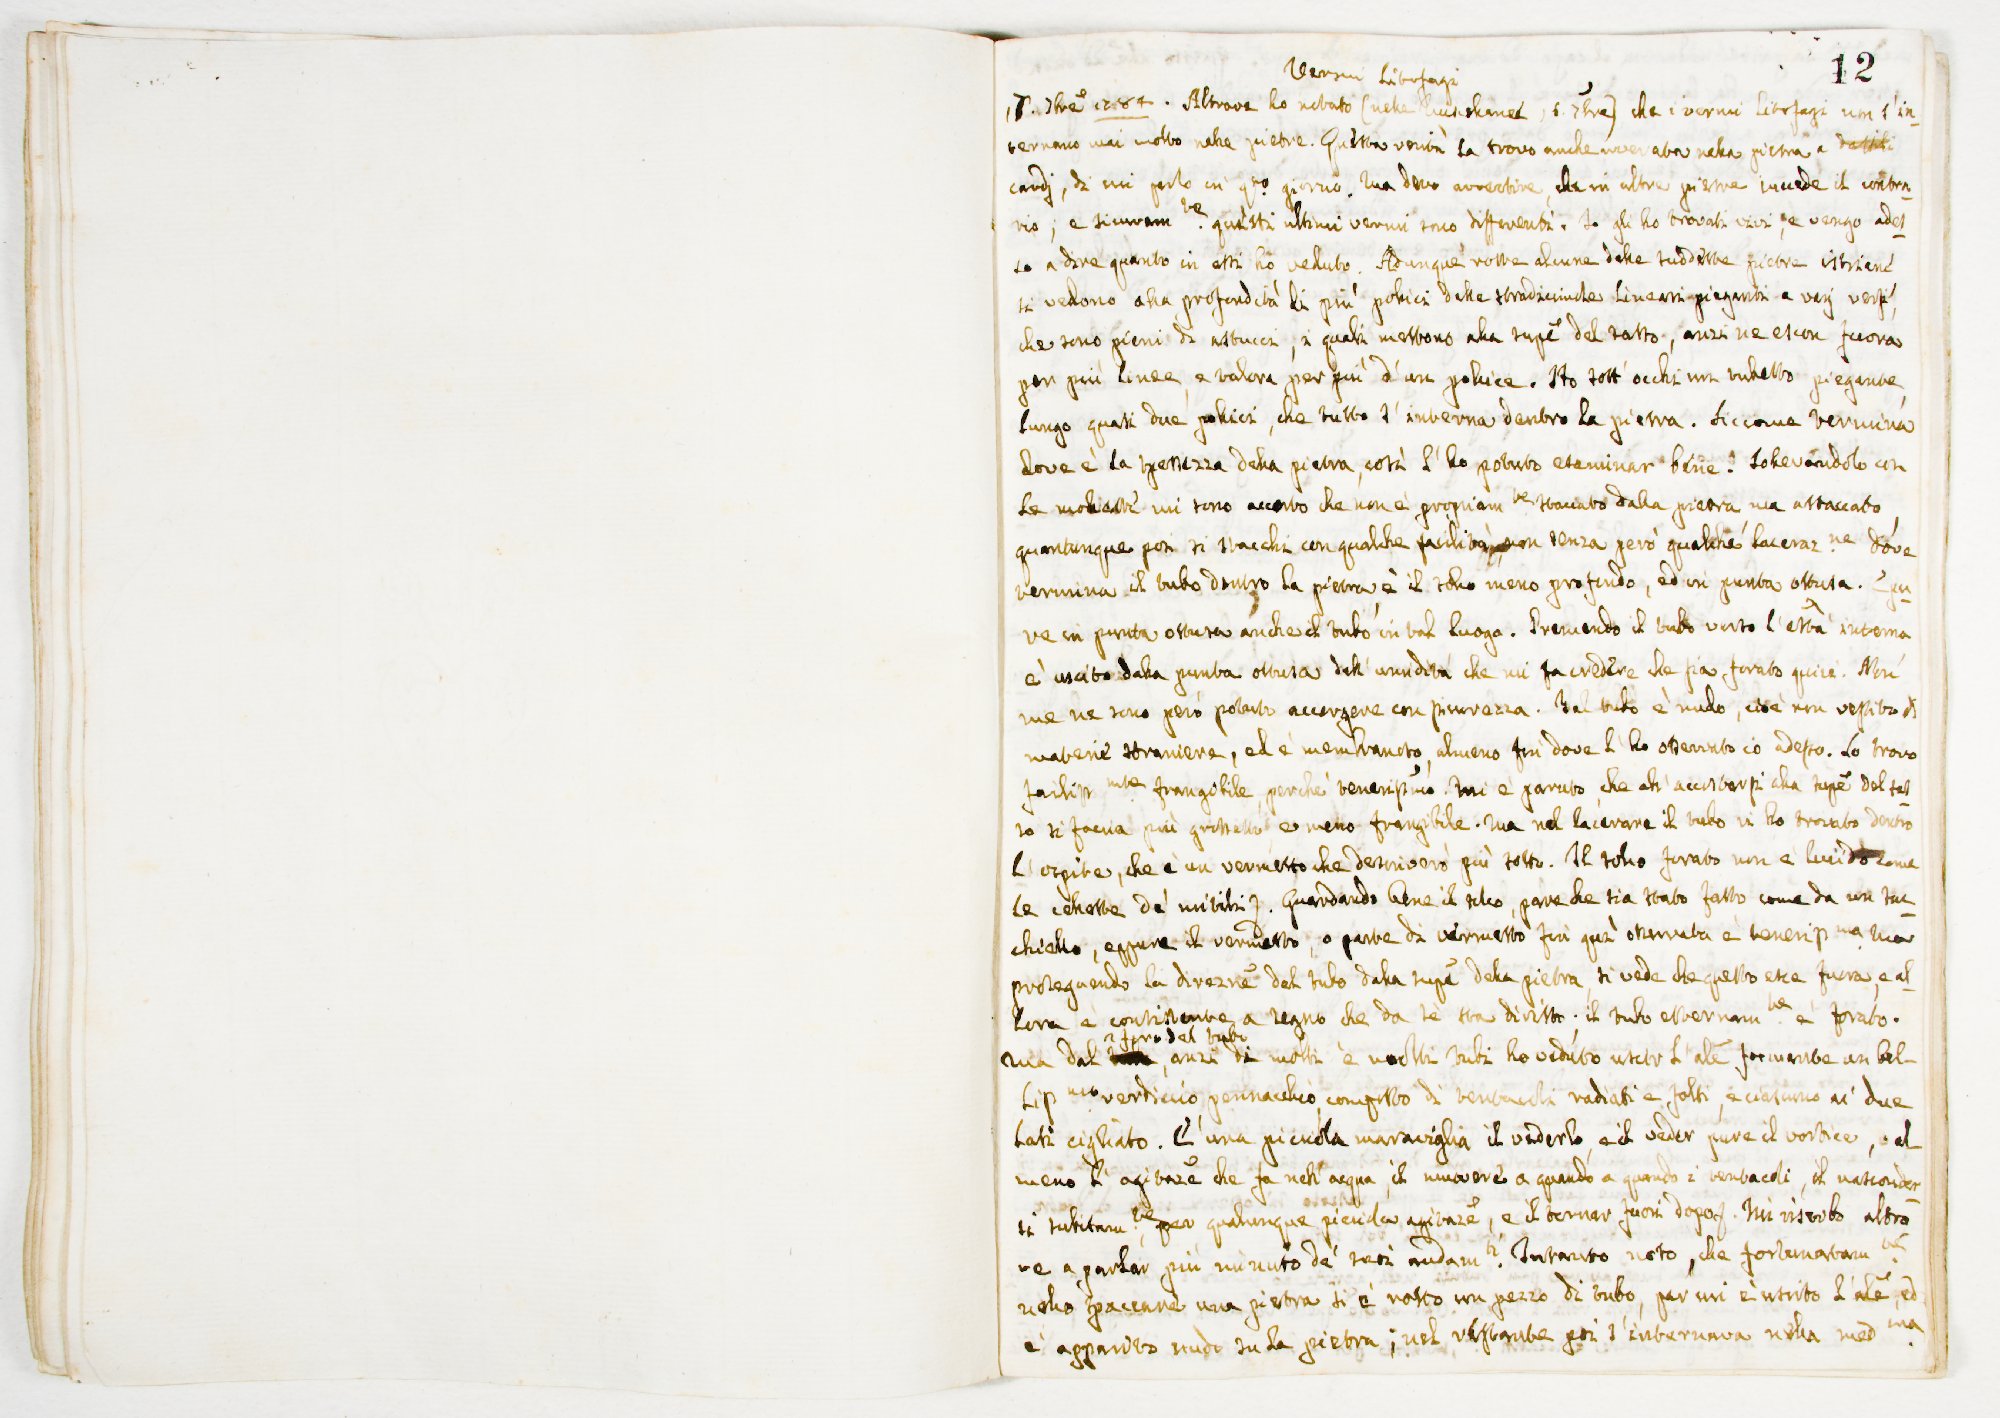 12
Vermi litofagi
7. 7bre 1784. Altrove ho notato (nelle 6. 7bre) che i vermi litofagi non s'in-
ternano mai molto nelle pietre. Questa verità la trovo anche avverata nella pietra a dattili
cardj, di cui parlo in qto giorno. Ma devo avvertire, che in altre pietre succede il contra-
rio; e sicuramte. questi ultimi vermi sono differenti. Io gli ho trovati vivi, e vengo ades-
so a dire quanto in essi hò veduto. Adunque rotte alcune delle suddette pietre istriane
si vedono alla profondità di più pollici delle stradicciuole lineari pieganti a varj versi,
che sono pieni di astucci, i quali mettono alla supe del sasso, anzi ne escon fuora
per più linee, e talora per più d'un pollice. Ho sott'occhi un tubetto piegante,
lungo quasi due pollici, che tutto s'interna dentro la pietra. Siccome termina
dove è la spessezza della pietra, così l'ho potuto esaminar bene. Sollevandolo con
le mollette mi sono accorto che non è propriamte staccato dalla pietra ma attaccato,
quantunque poi si stacchi con qualche facilità, non senza però qualche lacerazne dove
termina il tubo dentro la pietra, è il solco meno profondo, ed in punta ottusa. E pu-
re in punta ottusa anche il tubo in tal luogo. Premendo il tubo verso l'està interna
è uscito dalla punta ottusa dell'umidità che mi fa credere che sia forato quivi. Non
me ne sono però potuto accorgere con sicurezza. Tal tubo è nudo, cioè non vestito di
materie straniere, ed è membranoso, almeno fin dove l'ho osservato io adesso. Lo trovo
facilissmte frangibile, perchè tenerissimo. Mi è paruto, che all'accostarsi alla supe del sas-
so si faccia più grossetto e meno frangibile. Ma nel lacerare il tubo vi ho trovato dentro
l'ospite, che è un vermetto che descriverò più sotto. Il solco forato non è lucido come
le cellette de' mitili. Guardando bene il solco, pare che sia stato fatto come da un suc-
chiello, eppure il vermetto, o parte di vermetto fin quì osservata è tenerissma. Ma
proseguendo la direzne del tubo dalla supe della pietra, si vede che questo esce fuora, e al-
lora è consistente a segno che da se sta diritto; il tubo esternamte. è forato.
Ma dal foro del tubo, anzi di molti e molti tubi ho veduto uscir l'ale formante un bel-
lissmo verticcio pennacchio, composto di tentacoli radiati e folti, e ciascuno ai due
lati cigliato. E' una piccola maraviglia il vederlo, e il veder pure il vortice, o al-
meno l'agitaze che fa nell'acqua, il muovere a quando a quando i tentacoli, il nasconder-
si subitamte, per qualunque piccola agitaze, e il tornar fuori dopo. Mi riserbo altro-
ve a parlar più minuto de' suoi andamti. Intanto noto, che fortunatamte.
nello spaccare una pietra si è rotto un pezzo di tubo, per cui è uscito l'ale, ed
è apparito nudo su la pietra; nel restante poi s'internava nella medma.